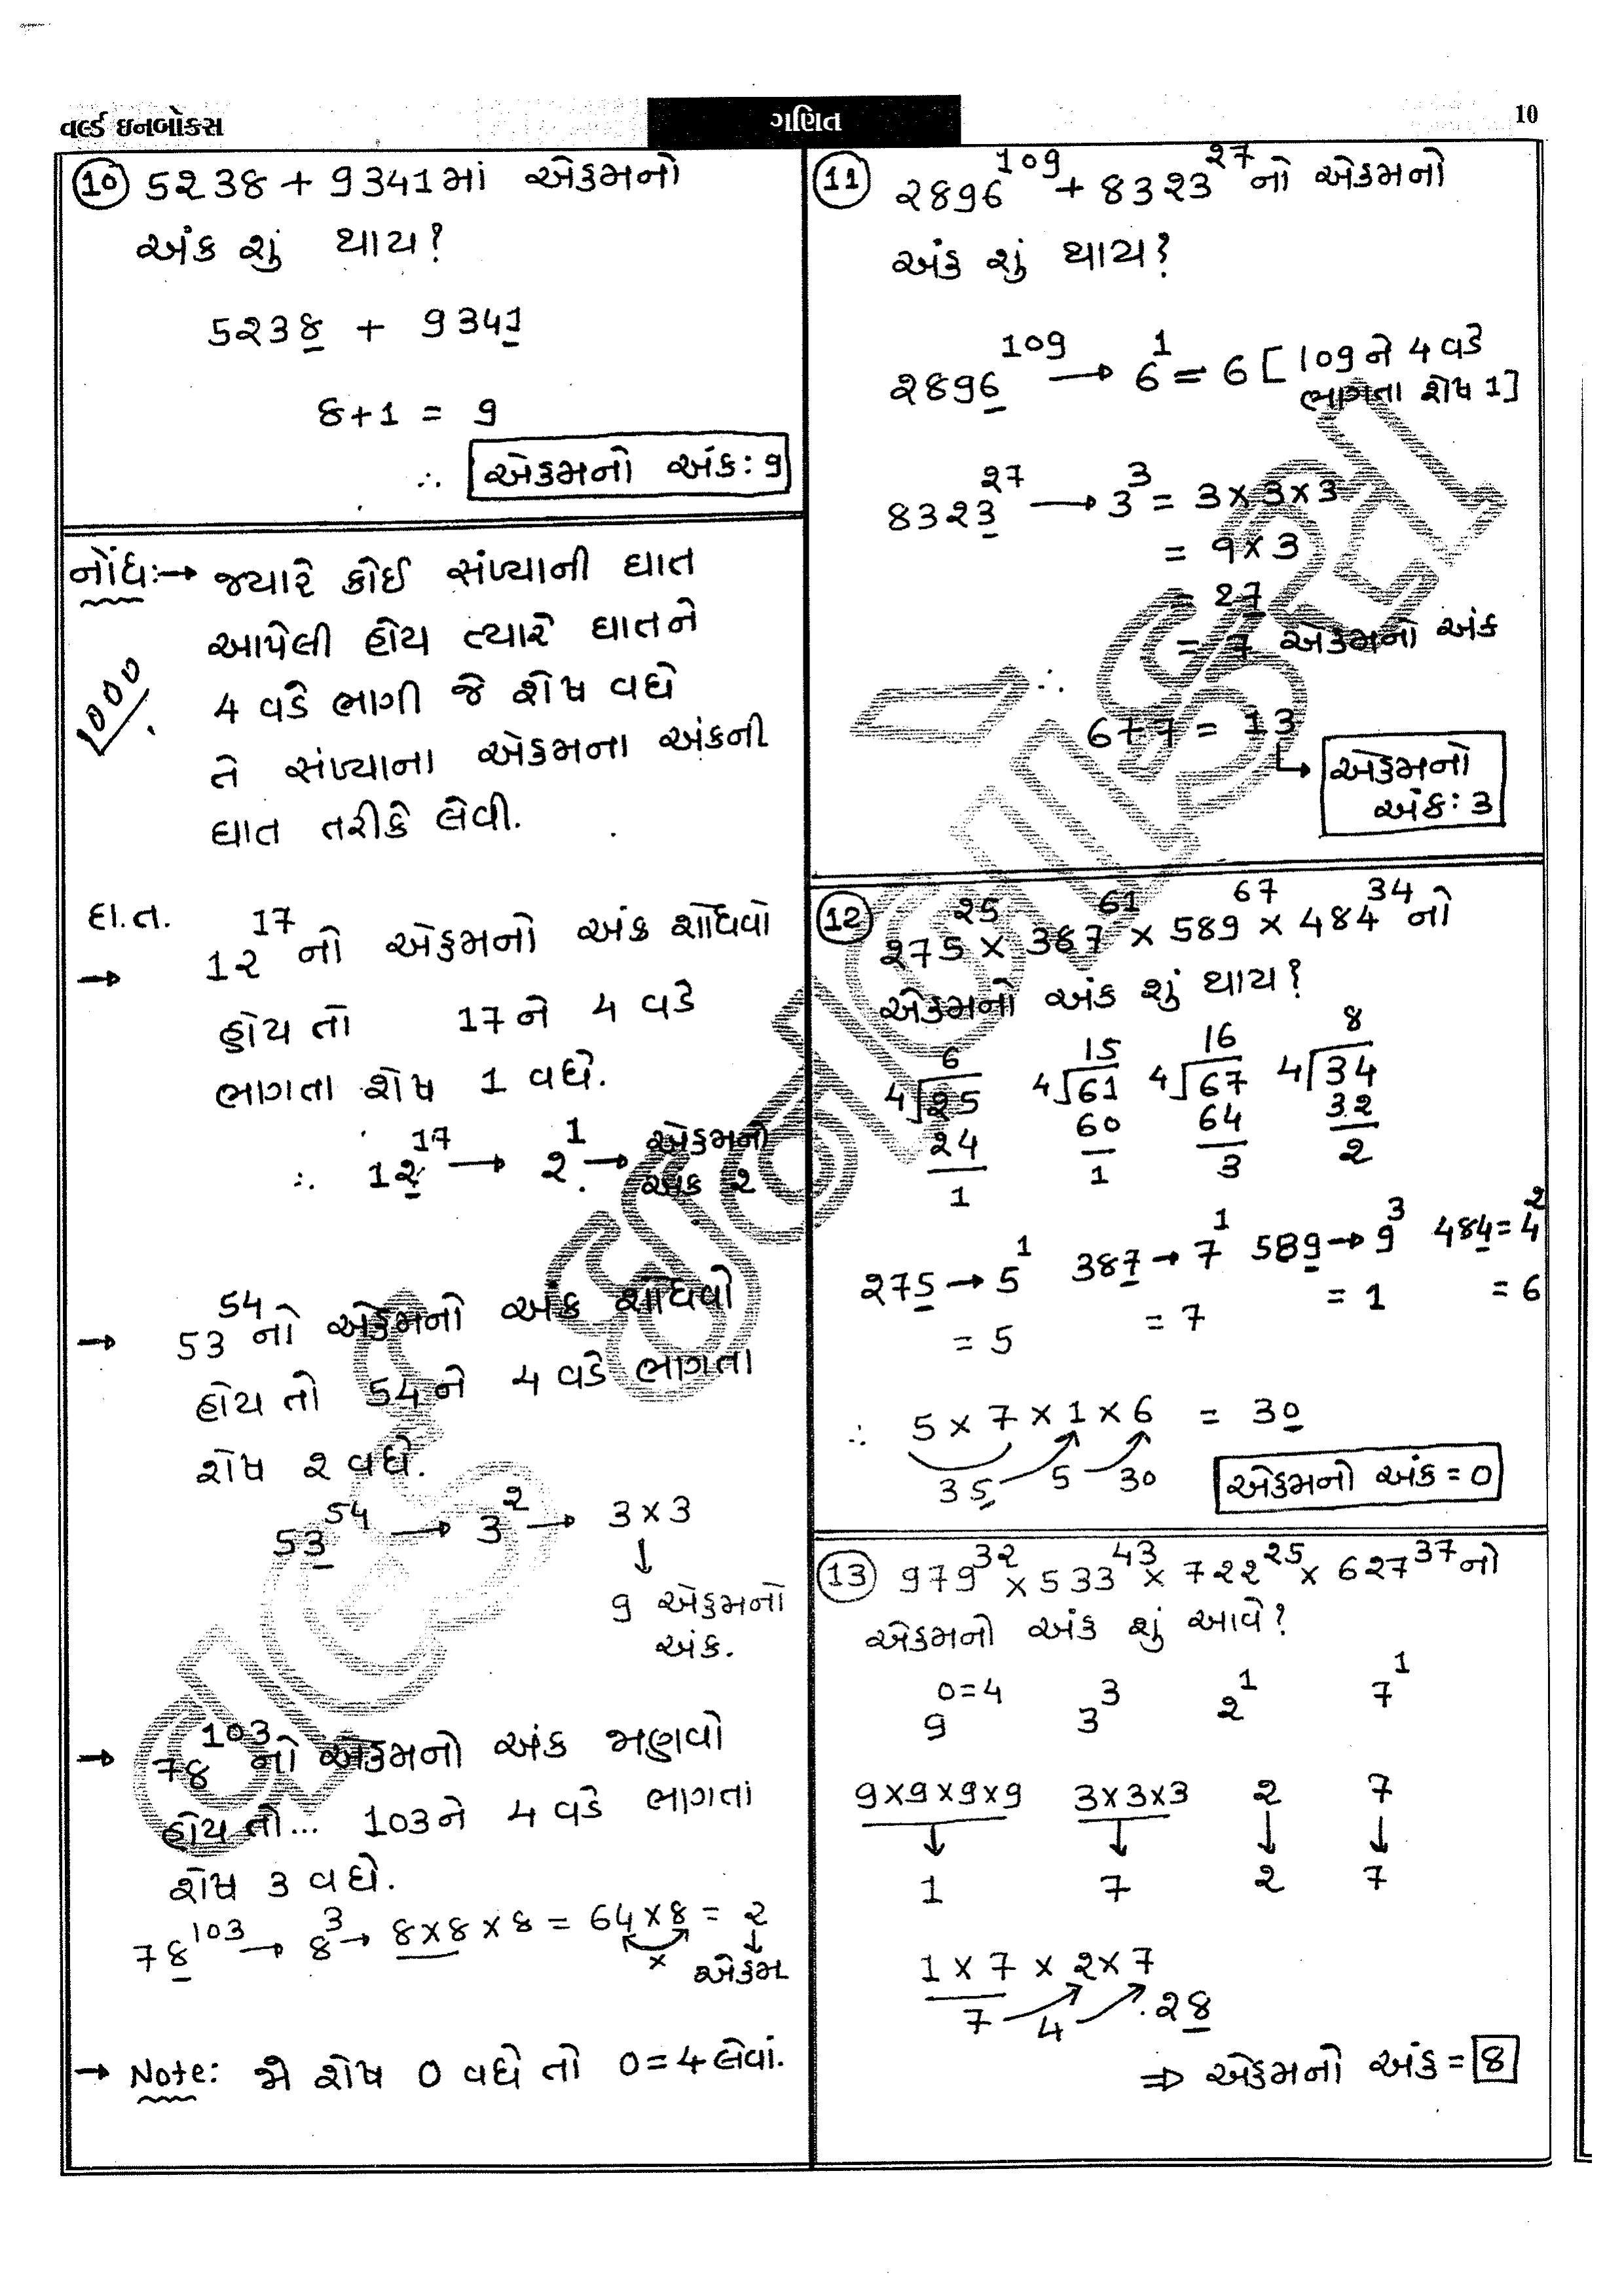 વર્લ્ડ ઇનબોક્સ
ગણિત
10
(10) 5238 + 9341માં એકમનો
અંક શું થાય?
5238 + 9341
8+1 = 9
∴ એકમનો અંક: 9
નોંધ:→ જ્યારે કોઈ સંખ્યાની ઘાત
આપેલી હોય ત્યારે ઘાતને
4 વડે ભાગી જે શેષ વધે
તે સંખ્યાના એકમના અંકની
ઘાત તરીકે લેવી.
1000
દા.ત.
→ 12^17 નો એકમનો અંક શોધવો
હોય તો 17ને 4 વડે
ભાગતા શેષ 1 વધે.
∴ 12^17 → 2^1 → એકમનો
અંક 2
→ 53^54 નો એકમનો અંક શોધવો
હોય તો 54ને 4 વડે ભાગતા
શેષ 2 વધે.
53^54 → 3^2 → 3×3
↓
9 એકમનો
અંક.
→ 78^103 નો એકમનો અંક મણવો
હોય તો... 103ને 4 વડે ભાગતાં
શેષ 3 વધે.
78^103 → 8^3 → 8×8×8 = 64×8 = 2
× ↓
એકમ
→ Note: જો શેષ 0 વધે તો 0=4 લેવાં.
(11) 2896^109 + 8323^27 નો એકમનો
અંક શું થાય?
2896^109 → 6^1 = 6 [109ને 4 વડે
ભાગતા શેષ 1]
8323^27 → 3^3 = 3×3×3
= 9×3
= 27
= 7 એકમનો અંક
∴
6+7 = 13
↳ એકમનો
અંક: 3
(12) 275^25 × 387^61 × 589^67 × 484^34 નો
એકમનો અંક શું થાય?
6 15 16 8
4√25 4√61 4√67 4√34
24 60 64 32
1 1 3 2
275 → 5^1 387 → 7^1 589 → 9^3 484 = 4^2
= 5 = 7 = 1 = 6
∴ 5 × 7 × 1 × 6 = 30
35 5 30
એકમનો અંક = 0
(13) 979^32 × 533^43 × 722^25 × 627^37 નો
એકમનો અંક શું આવે?
9^0=4 3^3 2^1 7^1
9×9×9×9 3×3×3 2 7
↓ ↓ ↓ ↓
1 7 2 7
1 × 7 × 2 × 7
7 4 28
⇒ એકમનો અંક = 8
વર્લ્ડ ઇનબોક્સ